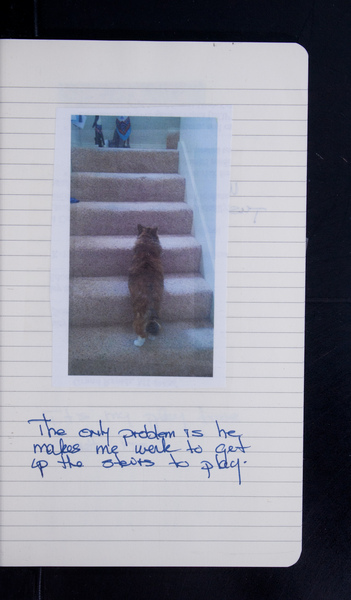 The only problem is he
makes me work to get
up the stairs to play.